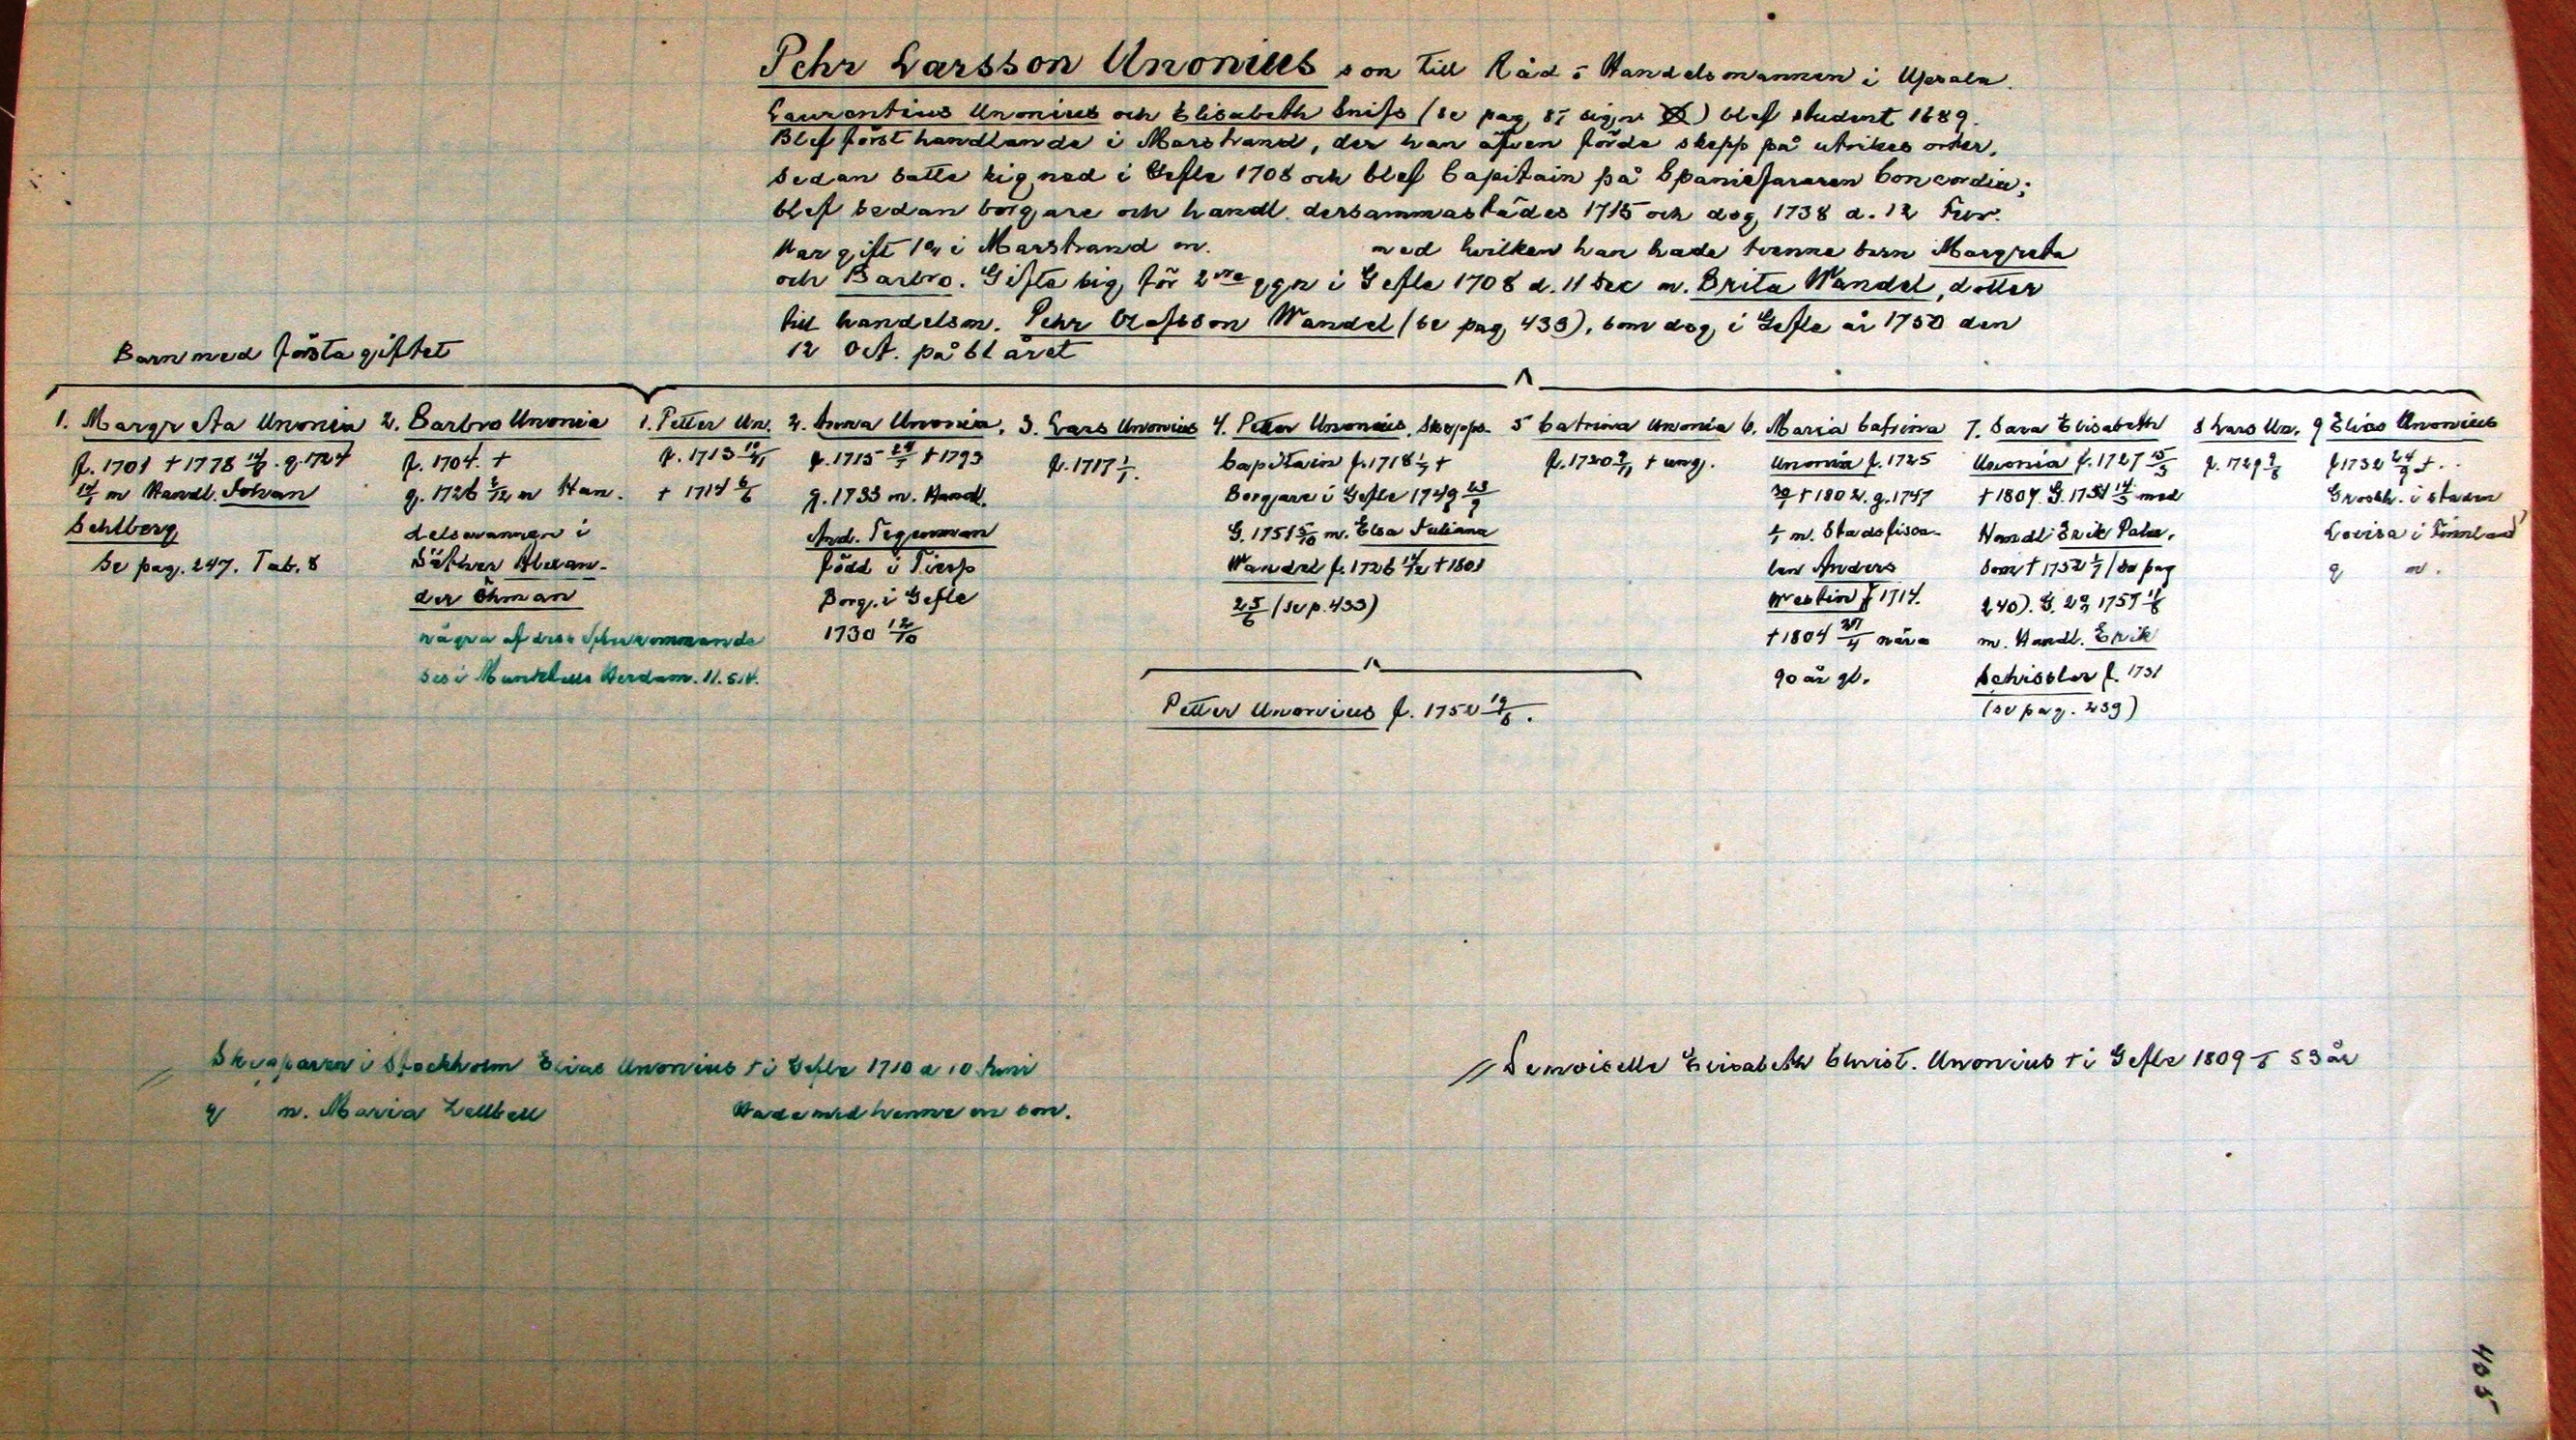 Pehr Larsson Unonius son till Råd o Handelsmannen i Upsala.
Laurentius Unonius och Elisabeth (se pag. sign. ) blef student 1689.
Blef först handlande i Marstrand, der han äfven förde skepp på utrikes orter,
sedan satte sig ned i Gefle 1708 och blef Capitain på Spaniefararen Concordia;
blef sedan borgare och handl. dersammastädes 1715 och dog 1738 d. 12
Var gift 1º i Marstrand m. med hvilken han hade tvenne barn Margreta
och Barbro. Gifte sig för 2dra ggn i Gefle 1708 d. 11 Dec m. Brita Wandel, dotter
till handelsm. Pehr Olofsson Wandel (se pag 433), som dog i Gefle år 1750 den
12 Oct. på 61 året
Barn med första giftet
1. Margreta Unonia
f. 1701 † 1778 g. 1724
m Handl. Johan
Sehlberg
Se pag. 247. Tab. 8
2. Barbro Unonia
f. 1704. †
g. 1726 m Han-
delsmannen i
Säther Alexan-
der Öhman
några af dess
ses i Herdam. II. 514.
1. Petter Un.
f. 1713
† 1714 6/6
2. Anna Unonia.
f. 1715 † 1793
g. 1733 m. Handl.
And. Tegerman
född i Tierp
Borg. i Gefle
1730 12/10
3. Lars Unonius
f. 1717 1/1.
4. Petter Unonius. Skepps-
Capitain f. 1718 †
Borgare i Gefle 1749
G. 1751 5/10 m. Elsa Juliana
Wandel f. 1726 † 1801
25/6 (se p. 433)
Petter Unonius f. 1752
5 Catrina Unonia
f. 1720 † ung.
6. Maria Catrina
Unonia f. 1725
† 1802. g. 1747
m. Stadsfisca-
len Anders
Westin f 1714.
† 1804 nära
90 år gl.
7. Sara Elisabeth
Unonia f. 1727 15/3
† 1807. G. 1751 med
Handl. Erik Palm,
som † 1752 (se pag
240). G. 2º 1757
m. Handl. Erik
Schissler f. 1731
(se pag. 239)
8 Lars Un.
f. 1729
9 Elias Unonius
f 1732 24/9 †..
Grosshl. i staden
Lovisa i Finnland
g m.
Skepparen i Stockholm Elias Unonius † i Gefle 1710 d 10 Juni
g m. Maria Zellbell Hade med henne en son.
// Demoiselle Elisabeth Christ. Unonius † i Gefle 1809 53 år